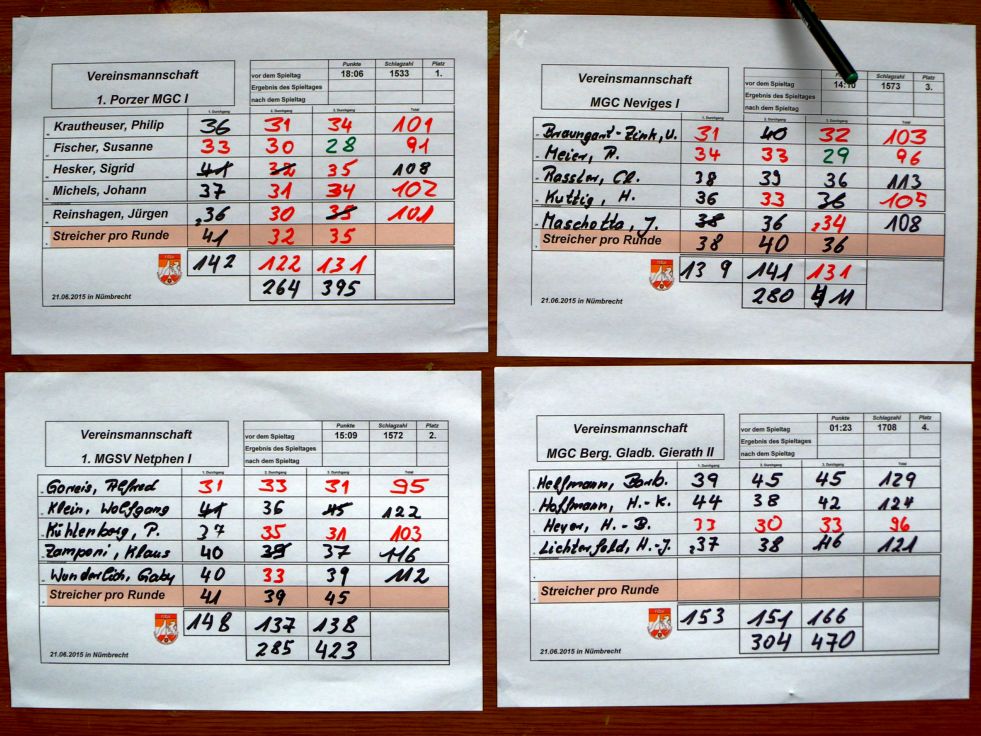 Punkte Schlagzahl Platz
vor dem Spieltag 18:06 1533 1.
Vereinsmannschaft
Ergebnis des Spieltages
1. Porzer MGC I
nach dem Spieltag
1. Durchgang 2. Durchgang 3. Durchgang Total
Krautheuser, Philip 36 31 34 101
Fischer, Susanne 33 30 28 91
Hesker, Sigrid 41 32 35 108
Michels, Johann 37 31 34 102
Reinshagen, Jürgen 36 30 35 101
Streicher pro Runde 41 32 35
142 122 131
264 395
21.06.2015 in Nümbrecht
Schlagzahl Platz
vor dem Spieltag 14:10 1573 3.
Vereinsmannschaft
Ergebnis des Spieltages
MGC Neviges I
nach dem Spieltag
1. Durchgang 2. Durchgang 3. Durchgang Total
Braungart-Zink, U. 31 40 32 103
Meier, R. 34 33 29 96
Rassler, Cl. 38 39 36 113
Kuttig, H. 36 33 36 105
Maschotta, J. 38 36 34 108
Streicher pro Runde 38 40 36
139 141 131
280 411
21.06.2015 in Nümbrecht
Punkte Schlagzahl Platz
vor dem Spieltag 15:09 1572 2.
Vereinsmannschaft
Ergebnis des Spieltages
1. MGSV Netphen I
nach dem Spieltag
1. Durchgang 2. Durchgang 3. Durchgang Total
Gorreis, Alfred 31 33 31 95
Klein, Wolfgang 41 36 45 122
Kühlenborg, P. 37 35 31 103
Zamponi, Klaus 40 39 37 116
Wunderlich, Gaby 40 33 39 112
Streicher pro Runde 41 39 45
148 137 138
285 423
21.06.2015 in Nümbrecht
Punkte Schlagzahl Platz
vor dem Spieltag 01:23 1708 4.
Vereinsmannschaft
Ergebnis des Spieltages
MGC Berg. Gladb. Gierath II
nach dem Spieltag
1. Durchgang 2. Durchgang 3. Durchgang Total
Helfmann, Barb. 39 45 45 129
Hoffmann, H.-K. 44 38 42 124
Heyer, H.-B. 33 30 33 96
Lichterfeld, H.-J. 37 38 46 121
Streicher pro Runde
153 151 166
304 470
21.06.2015 in Nümbrecht